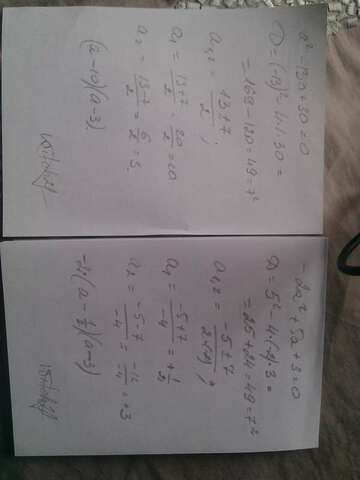 a² - 13a + 30 = 0
D = (-13)² - 4·1·30 =
= 169 - 120 = 49 = 7²
a₁,₂ = (13 ± 7)/2 ;
a₁ = (13+7)/2 = 20/2 = 10
a₂ = (13-7)/2 = 6/2 = 3.
(a-10)(a-3)
-2a² + 5a + 3 = 0
D = 5² - 4·(-2)·3 =
= 25 + 24 = 49 = 7²
a₁,₂ = (-5 ± 7)/(2·(-2)) ;
a₁ = (-5+7)/-4 = + 1/2
a₂ = (-5-7)/-4 = -12/-4 = +3
-2(a - 1/2)(a-3)